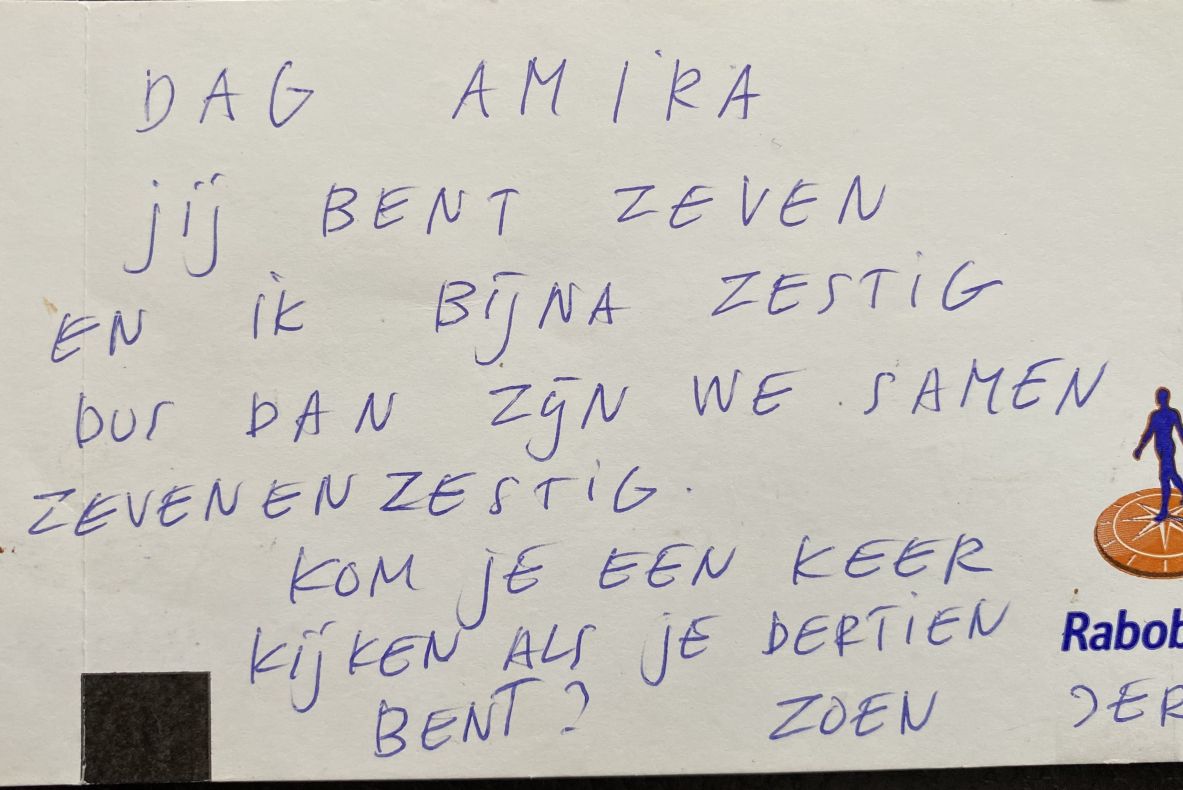 DAG AMIRA
jij BENT ZEVEN
EN iK BijNA ZESTiG
DUS DAN ZijN WE SAMEN
ZEVENENZESTiG.
KOM jE EEN KEER
KijKEN ALS jE DERTiEN
BENT? ZOEN